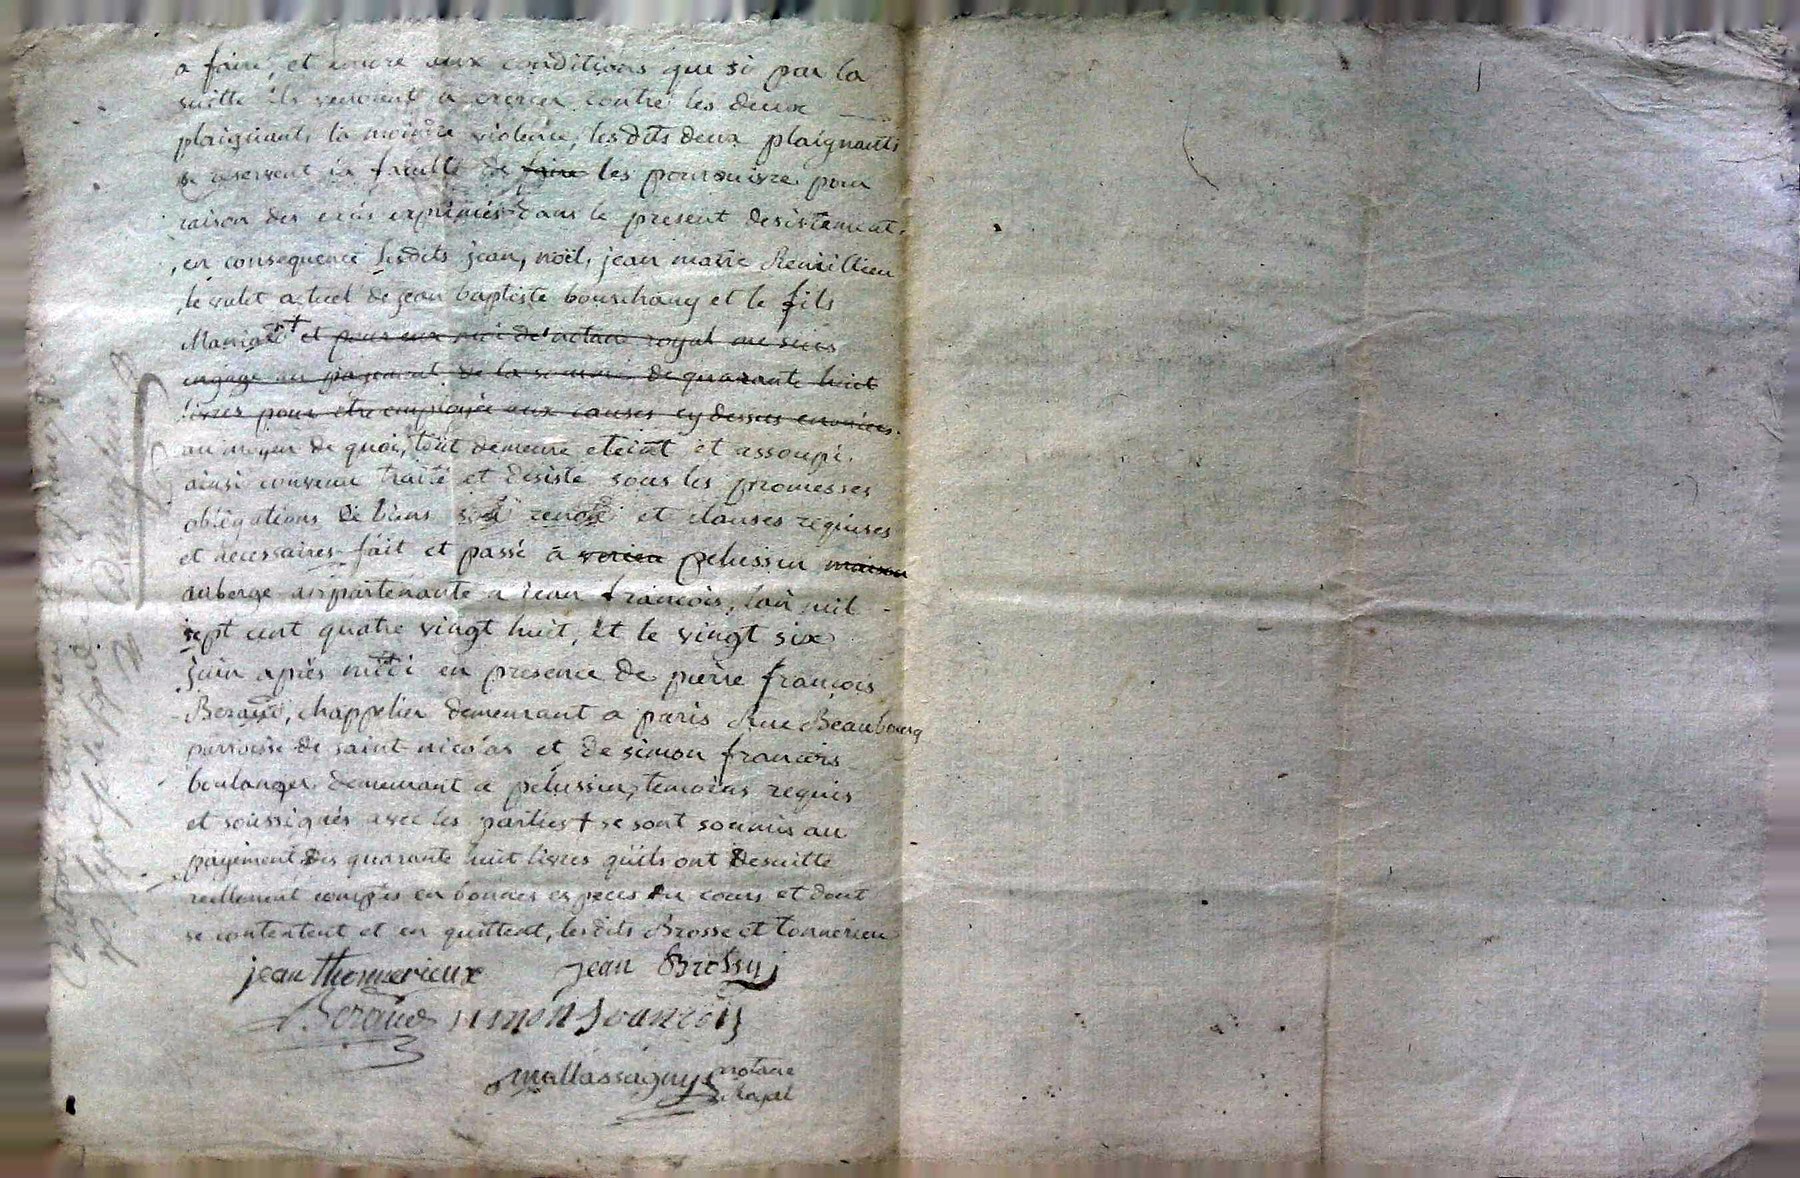 a faire, et encore aux conditions que si par la
suitte ils venoient a exercer contre les deux
plaignants la moindre violence, lesdits deux plaignants
se reservent la faculté de faire les poursuivre pour
raison des excés exprimés dans le present desistement,
en consequence lesdits jean, noël, jean marie Remillieu
le valet actuel de jean baptiste bourchany et le fils
et pour eux moi dt notaire royal me suis
engagé au payement de la somme de quarante huit
livres pour être employée aux causes cy dessus enoncées.
au moyen de quoi, tout demeure eteint et assoupi.
ainsi convenu traité et desisté sous les promesses
obligations de biens et clauses requises
et necessaires fait et passé a pelussin maison
auberge appartenante a jean françois, l'an mil
sept cent quatre vingt huit, et le vingt six
juin après midi en presence de pierre françois
Beraud, chappelier demeurant a paris Rue Beaubourg
parroisse de saint nicolas et de simon francois
boulanger demeurant a pelussin, temoins requis
et soussignés avec les parties + se sont soumis au
payement des quarante huit livres qu'ils ont desuitte
reellement comptés en bonnes especes du cours et dont
se contentent et en quittent, lesdits Brosse et tonnerieu
jean thonnerieux jean Brossy
Beraud simon francois
mallassagny notaire
Royal